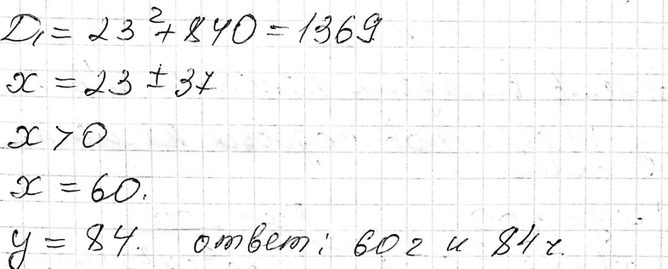 D₁ = 23² + 840 = 1369
x = 23 ± 37
x > 0
x = 60.
y = 84. ответ: 60 г и 84 г.